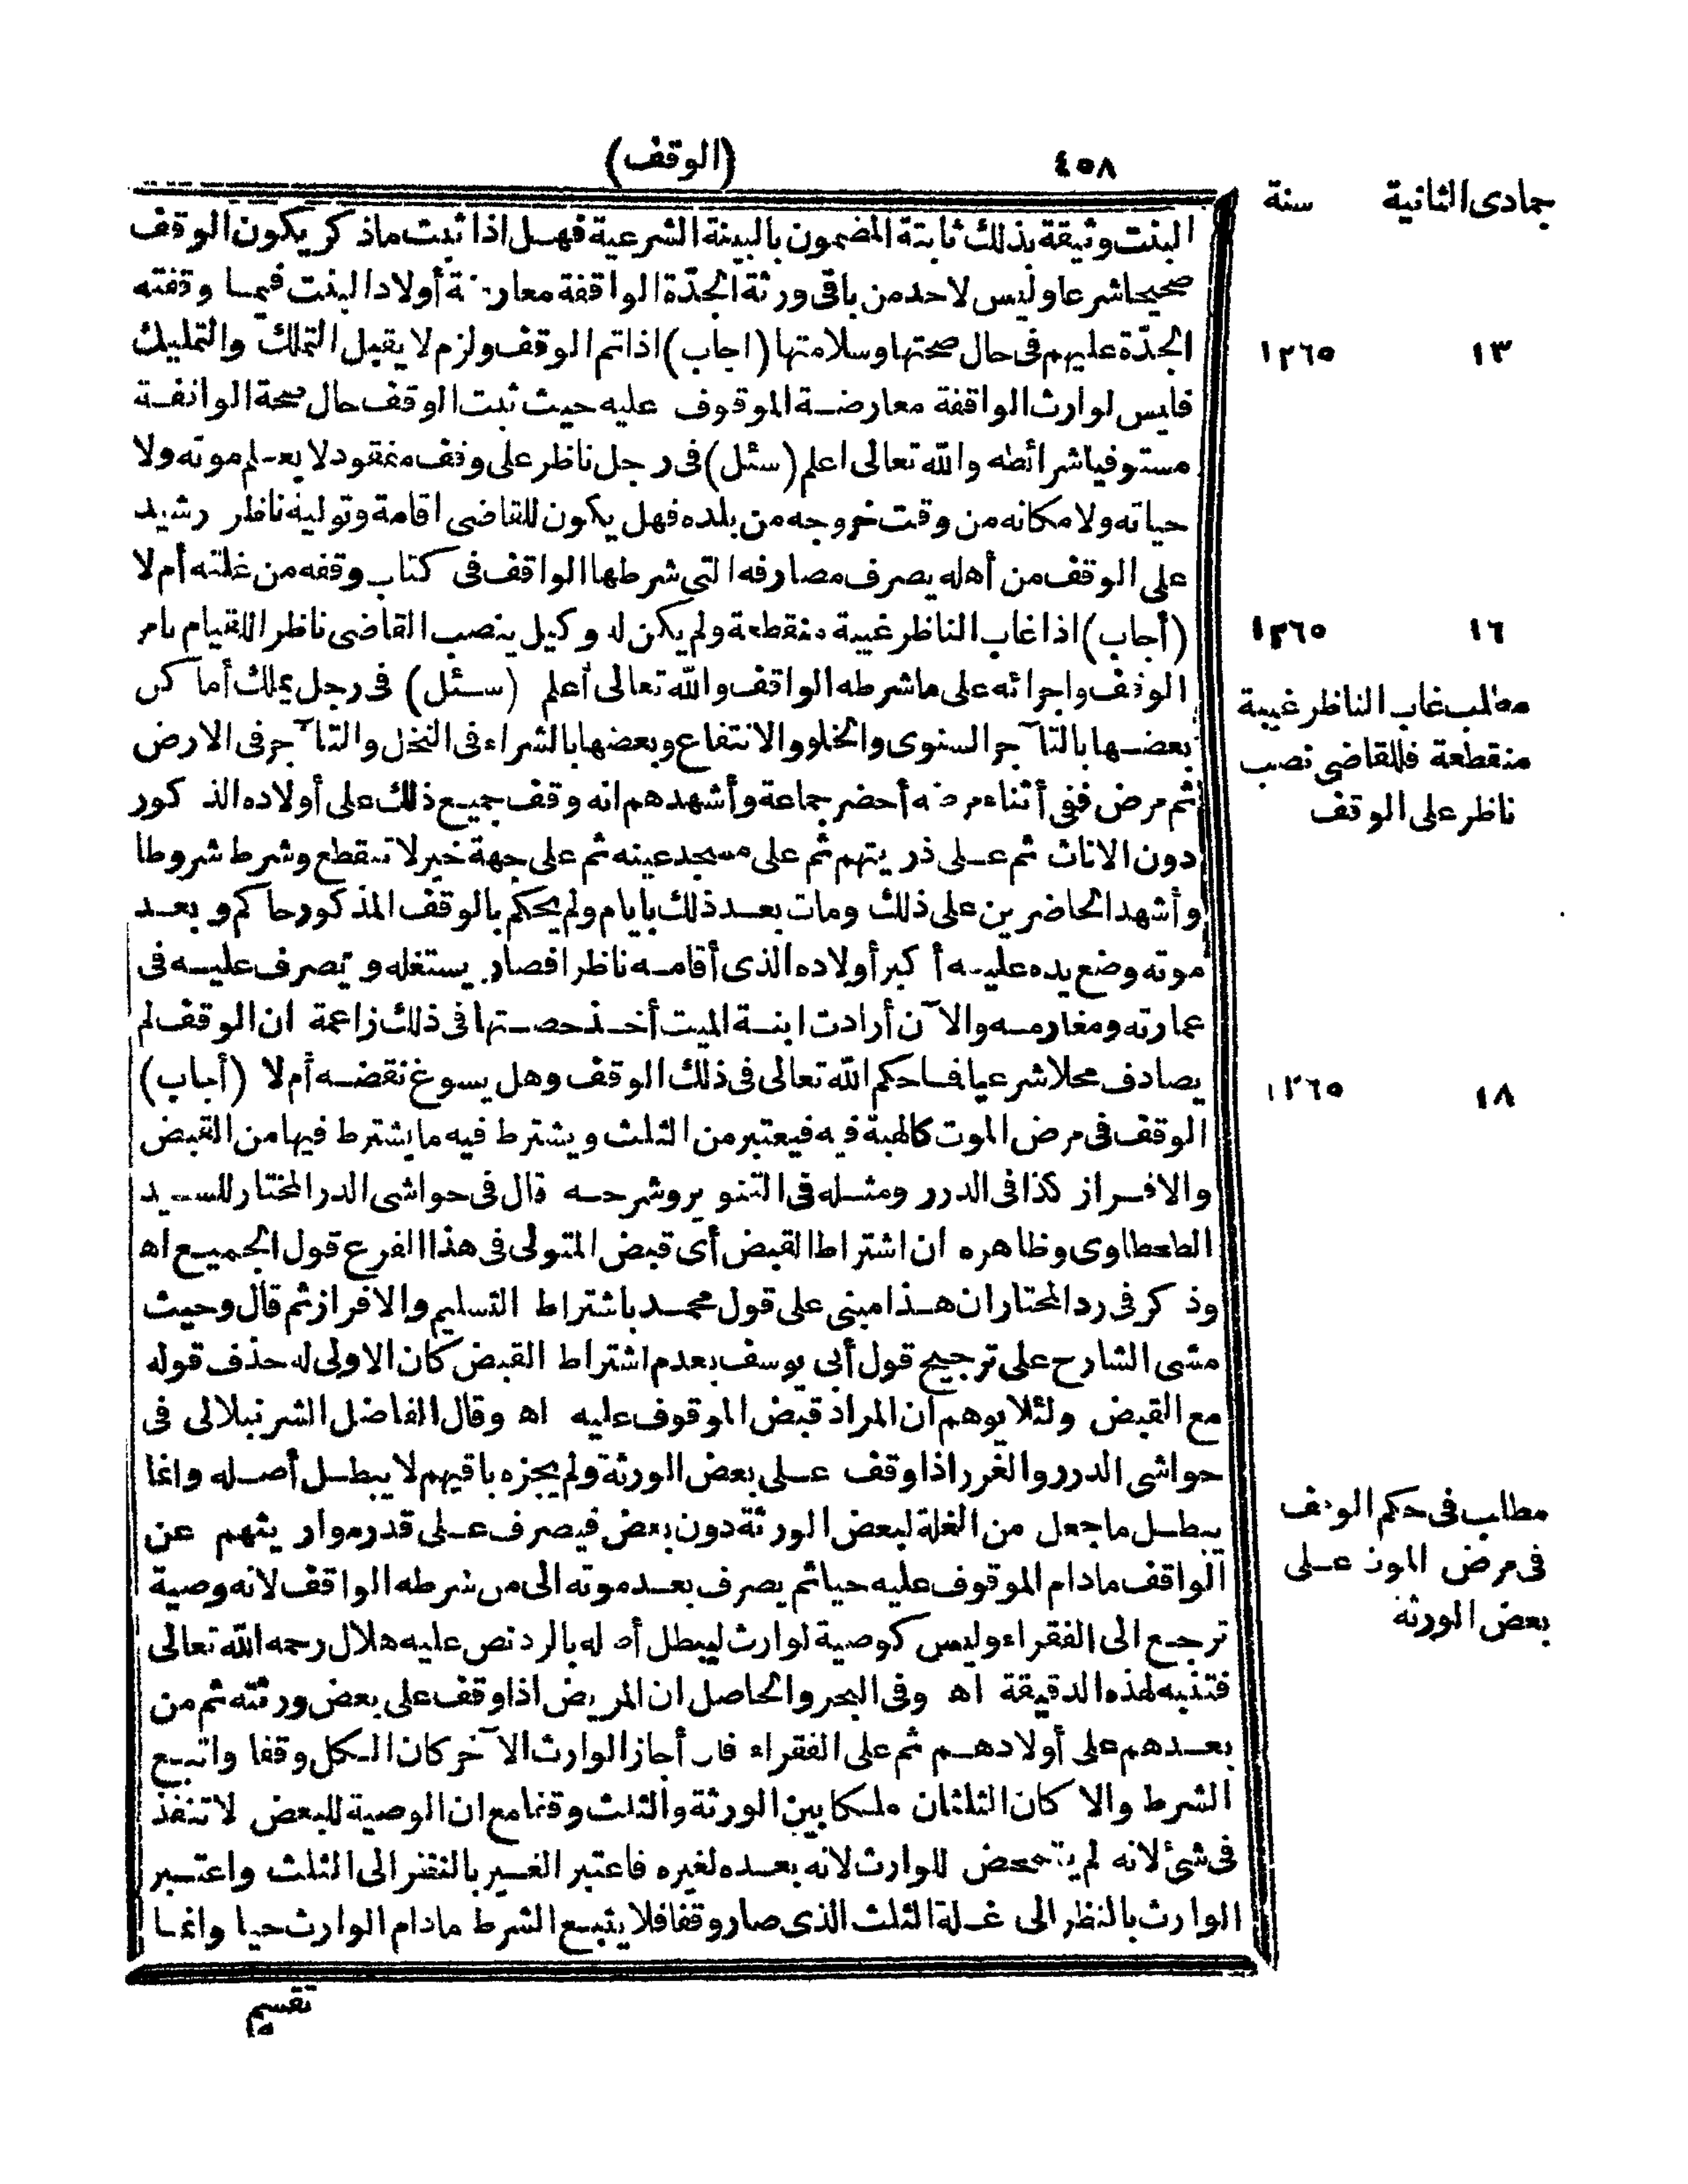 ٤٥٨
(الوقف)
جمادى الثانية سنة
البنت وثيقة بذلك ثابتة المضمون بالبينة الشرعية فهل اذا ثبت ماذكر يكون الوقف
صحيحا شرعا وليس لاحد من باقى ورثة الجدّة الواقفة معارضة أولاد البنت فيما وقفته
الجدّة عليهم فى حال صحتها وسلامتها (اجاب) اذا تم الوقف ولزم لا يقبل التملك والتمليك
١٣ ١٢٦٥
فليس لوارث الواقفة معارضة الموقوف عليه حيث ثبت الوقف حال صحة الواقفة
مستوفيا شرائطه والله تعالى اعلم (سئل) فى رجل ناظر على وقف مفقود لا يعلم موته ولا
حياته ولا مكانه من وقت خروجه من بلده فهل يكون للقاضى اقامة وتولية ناظر رشيد
على الوقف من أهله يصرف مصارفه التى شرطها الواقف فى كتاب وقفه من غلته أم لا
(أجاب) اذا غاب الناظر غيبة منقطعة ولم يكن له وكيل ينصب القاضى ناظرا للقيام بامر
١٦ ١٢٦٥
الوقف واجرائه على ما شرطه الواقف والله تعالى أعلم (سئل) فى رجل يملك أماكن
مطلب غاب الناظر غيبة
منقطعة فللقاضى نصب
ناظر على الوقف
بعضها بالتآجر السنوى والخلو والانتفاع وبعضها بالشراء فى النخل والتآجر فى الارض
ثم مرض ففى أثناء مرضه أحضر جماعة وأشهدهم انه وقف جميع ذلك على أولاده الذكور
دون الاناث ثم على ذريتهم ثم على مسجد عينه ثم على جهة خير لا تنقطع وشرط شروطا
وأشهد الحاضرين على ذلك ومات بعد ذلك بايام ولم يحكم بالوقف المذكور حاكم وبعد
موته وضع يده عليه أكبر أولاده الذى أقامه ناظرا فصار يستغله ويصرف عليه فى
عمارته ومغارمه والآن أرادت ابنة الميت أخذ حصتها فى ذلك زاعمة ان الوقف لم
يصادف محلا شرعيا فما حكم الله تعالى فى ذلك الوقف وهل يسوغ نقضه أم لا (أجاب)
١٨ ١٢٦٥
الوقف فى مرض الموت كالهبة فيه فيعتبر من الثلث ويشترط فيه ما يشترط فيها من القبض
والافراز كذا فى الدرر ومثله فى التنوير وشرحه قال فى حواشى الدر المختار للسيد
الطحطاوى وظاهره ان اشتراط القبض أى قبض المتولى فى هذا الفرع قول الجميع اه
وذكر فى رد المحتار ان هذا مبنى على قول محمد باشتراط التسليم والافراز ثم قال وحيث
مشى الشارح على ترجيح قول أبى يوسف بعدم اشتراط القبض كان الاولى له حذف قوله
مع القبض ولئلا يوهم ان المراد قبض الموقوف عليه اه وقال الفاضل الشرنبلالى فى
حواشى الدرر والغرر اذا وقف على بعض الورثة ولم يجزه باقيهم لا يبطل أصله وانما
مطلب فى حكم الوقف
فى مرض الموت على
بعض الورثة
يبطل ما جعل من الغلة لبعض الورثة دون بعض فيصرف على قدر مواريثهم عن
الواقف مادام الموقوف عليه حيا ثم يصرف بعد موته الى من شرطه الواقف لانه وصية
ترجع الى الفقراء وليس كوصية لوارث ليبطل أصله بالرد نص عليه هلال رحمه الله تعالى
فتنبه لهذه الدقيقة اه وفى البحر والحاصل ان المريض اذا وقف على بعض ورثته ثم من
بعدهم على أولادهم ثم على الفقراء فان أجاز الوارث الآخر كان الكل وقفا واتبع
الشرط والا كان الثلثان ملكا بين الورثة والثلث وقفا مع ان الوصية للبعض لا تنفذ
فى شئ لانه لم يتمحض للوارث لانه بعده لغيره فاعتبر الغير بالنظر الى الثلث واعتبر
الوارث بالنظر الى غلة الثلث الذى صار وقفا فلا يتبع الشرط مادام الوارث حيا وانما
تقسم